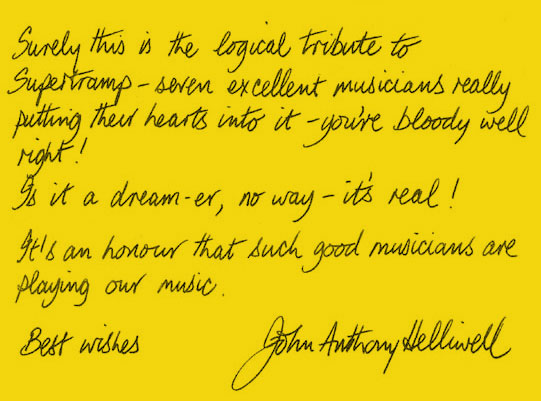 Surely this is the logical tribute to
Supertramp - seven excellent musicians really
putting their hearts into it - you're bloody well
right!
Is it a dream-er, no way - it's real!
It's an honour that such good musicians are
playing our music.
Best wishes John Anthony Helliwell